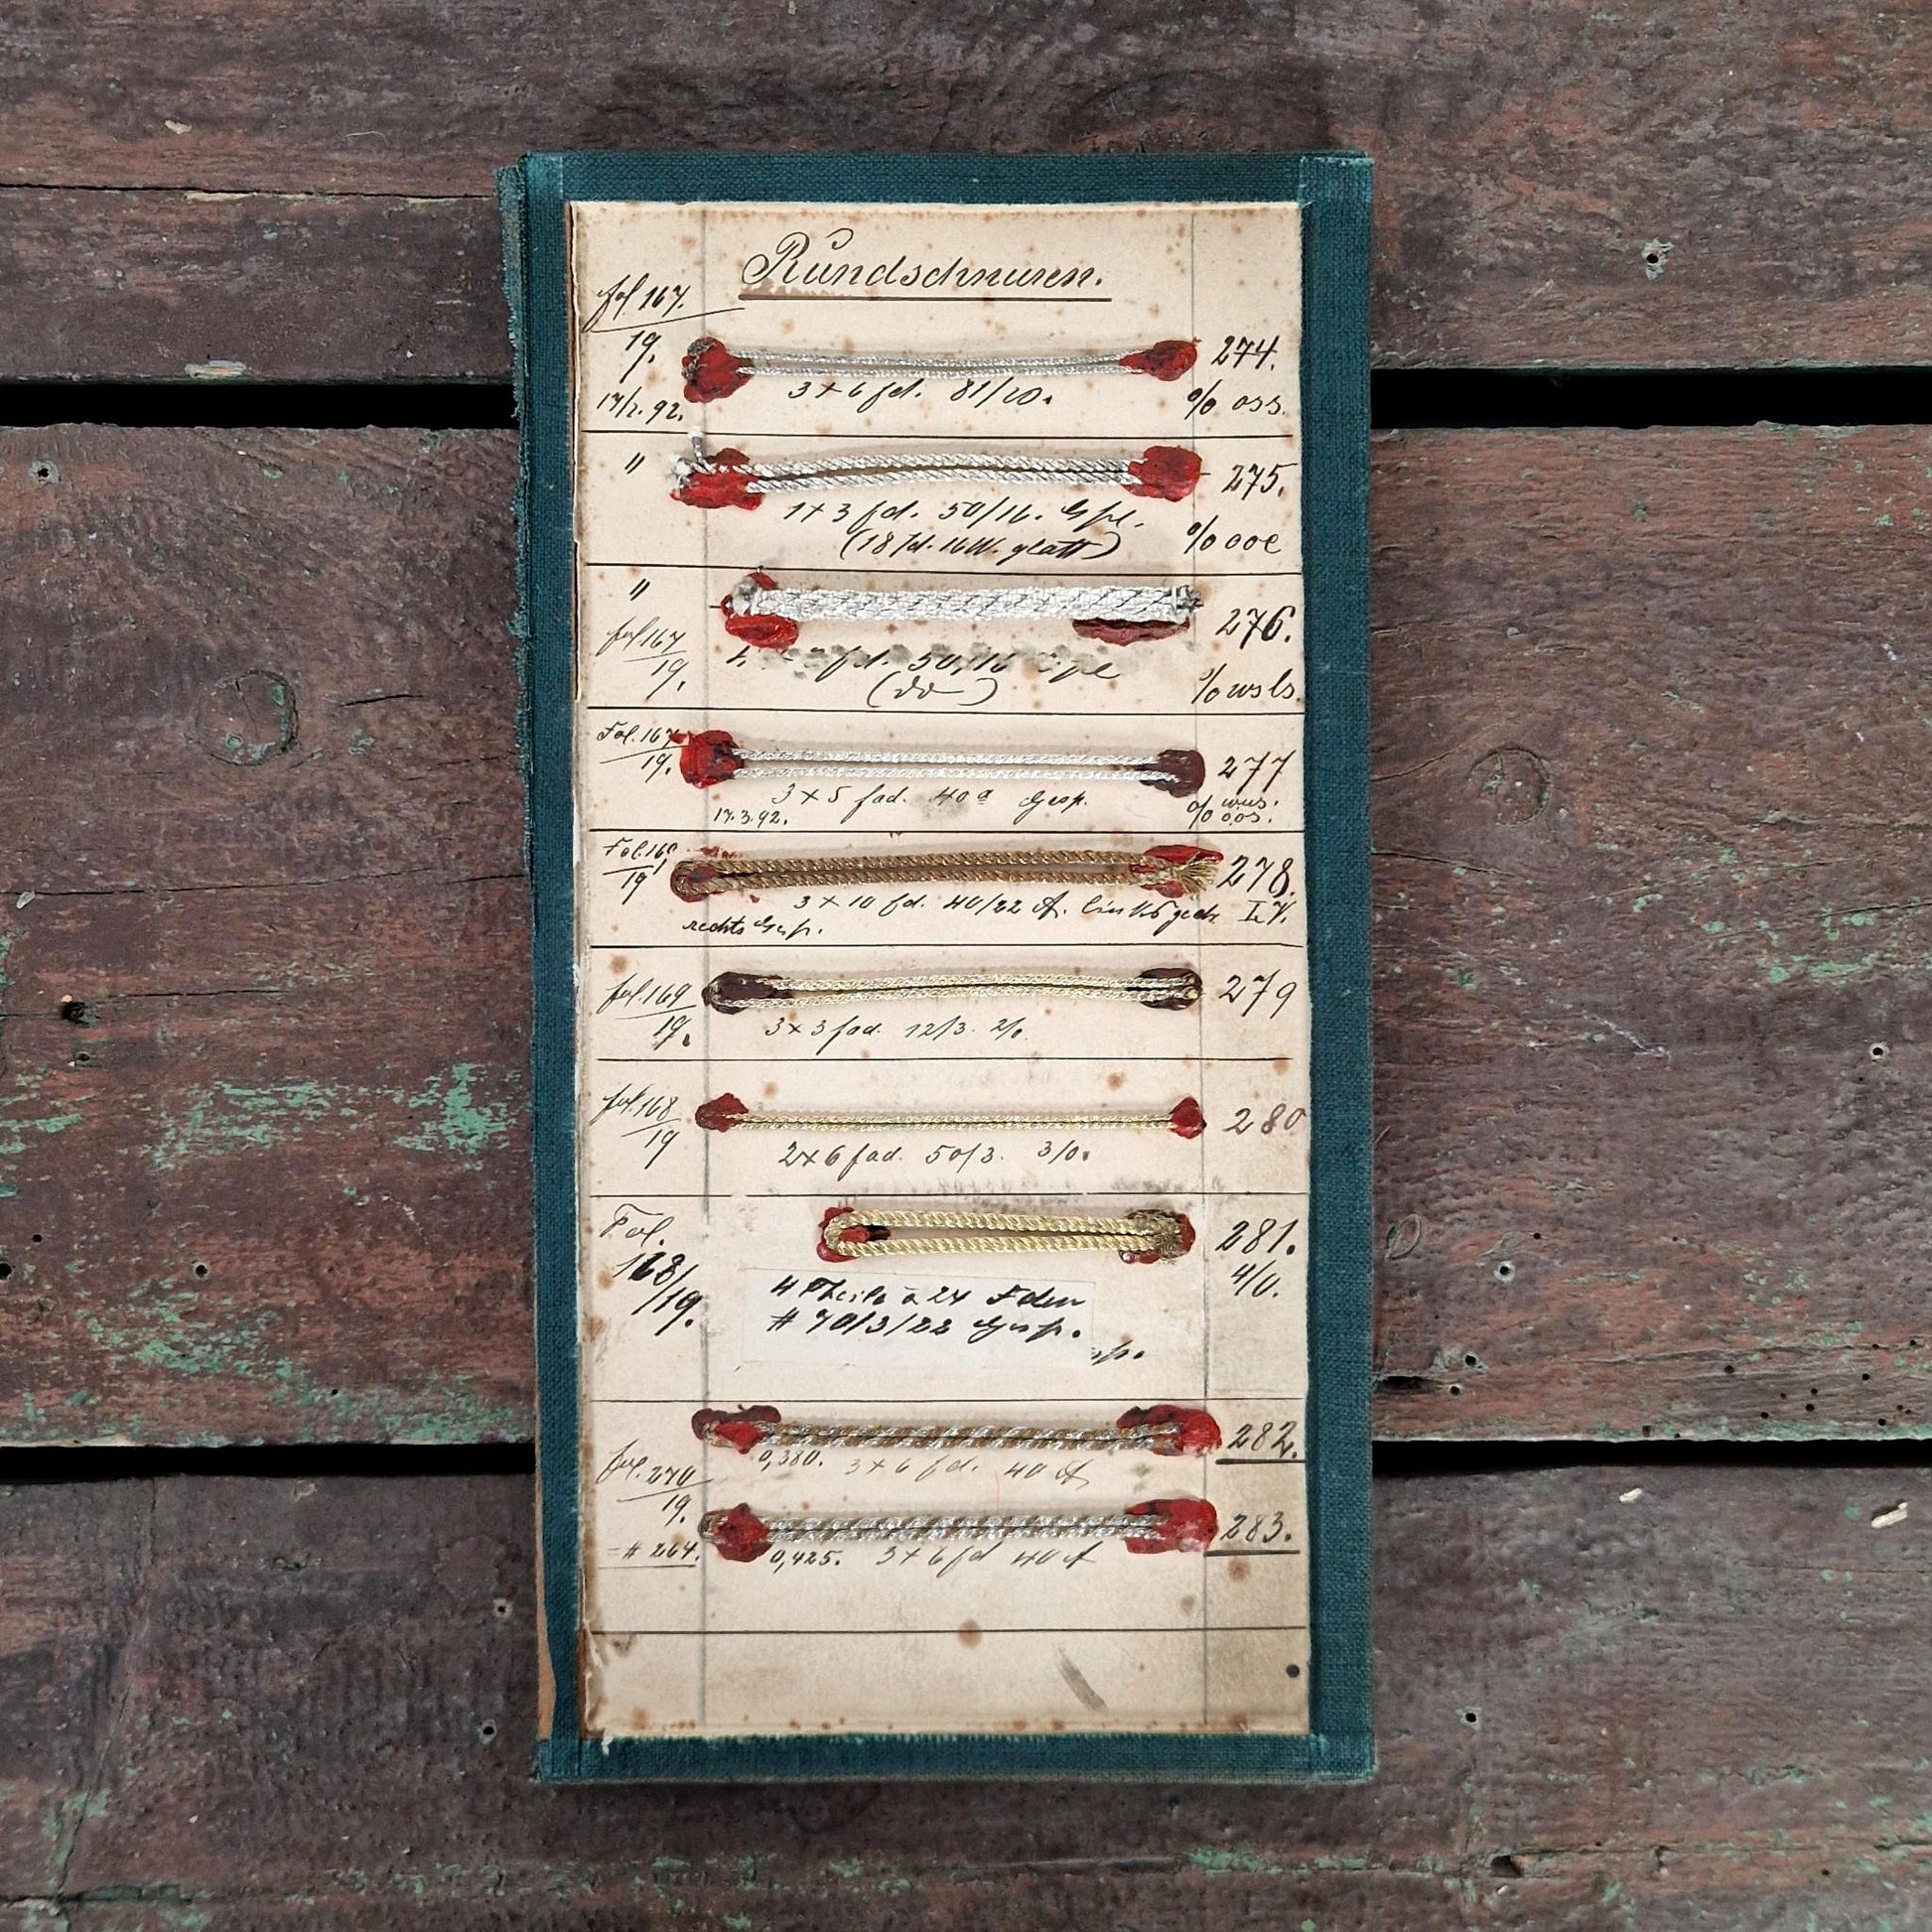 Rundschnuren.
fol. 167.
19.
274.
3 + 6 fd. 81/20.
17/2. 92.
% oss.
"
275.
1 + 3 fd. 50/16. Gspl.
(18 fd. 16W. glatt)
% ooe
"
276.
fol 167
19.
fd. 50/16
(do)
% wsls.
Fol. 167
19.
277
3 × 5 fad. 40 a Gesp.
17.3.92.
% wus.
oos.
Fol. 168
19
278.
3 × 10 fd. 40/22 links gedr.
rechts Gesp.
fol. 169
19.
279
3 × 3 fad. 12/3. 2/0.
fol. 168
19
280
2 × 6 fad. 50/3. 3/0.
Fol.
168/
19.
281.
4/0.
4 Theile à 24 Fden
# 70/3/22 Gesp.
sp.
282.
0,380. 3 + 6 fd. 40
fol. 270
19.
283.
= # 264.
0,425. 3 + 6 fd 40